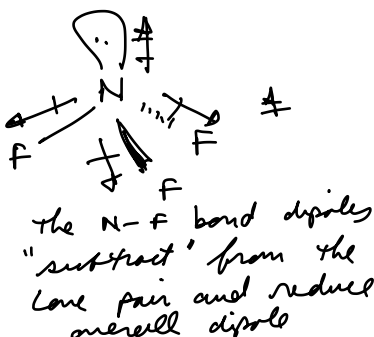 N
F
F
F
The N-F bond dipoles
"subtract" from the
Lone pair and reduce
overall dipole